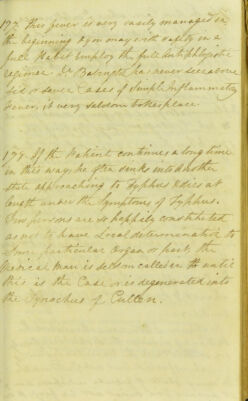 177. This fever is very easily managed in
the beginning you may with safety in a
full Habit employ the full Antiphlogistic
regimen Dr has never seen above
six or seven Cases of Simple Inflammatory
Fever, it very seldom takes place
178. If the Patient continues a long time
in this way, he often sinks into another
state approaching to Typhus & dies at
length under the Symptoms of Typhus.
Few persons are so happily constituted
as not to have Local determination to
Some particular Organ or part, the
Medical Man is seldom called in until
this is the Case or is degenerated into
the Synochus of Cullen.